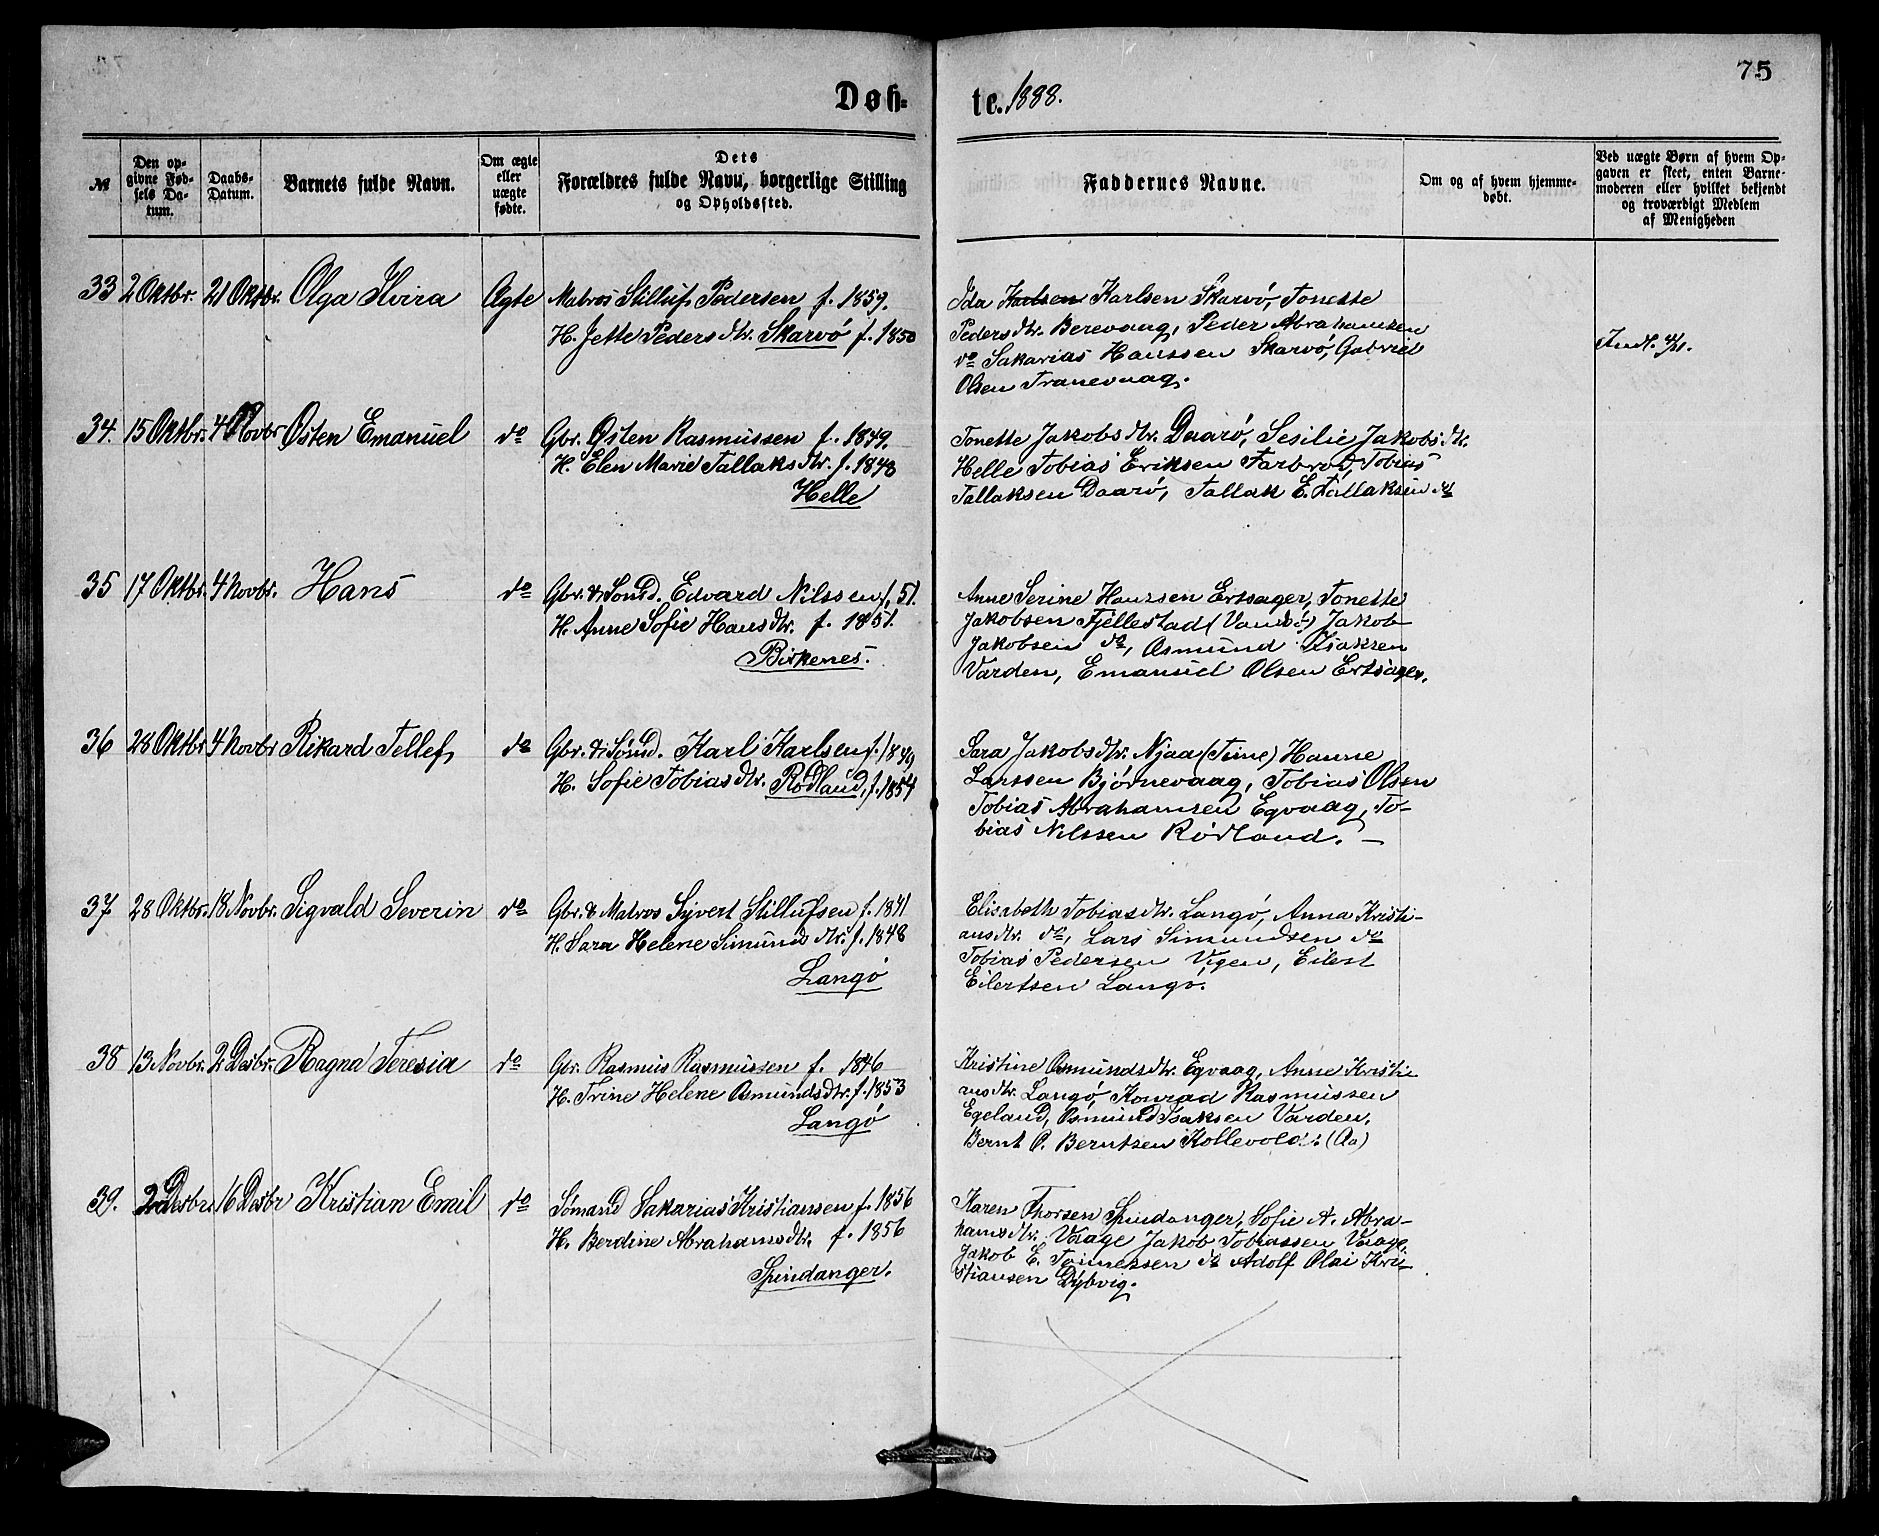 75
Døb-
te. 1888.
№
Den op-
givne Fød-
sels Da-
tum.
Daabs-
Datum.
Barnets fulde Navn.
Om ægte
eller
uægte
fødte.
Dets
Forældres fulde Navn, borgerlige Stilling
og Opholdssted.
Faddernes Navne.
Om og af hvem hjemme-
døbt.
Ved uægte Børn af hvem Op-
gaven er skeet, enten Barne-
moderen eller hvilket bekjendt
og troværdigt Medlem
af Menigheden
33 2 Oktbr. 21 Oktbr. Olga Elvira Ægte Matros Stilluf Pedersen f. 1859.
H. Jette Peders dtr. Skarvø f. 1850
Ida Karlsen Karlsen Skarvø, Tonette
Peders dtr. Berevaag, Peder Abrahamsen
do Sakarias Hanssen Skarvø, Gabriel
Olsen Tranevaag.
34. 15 Oktbr. 4 Novbr Østen Emanuel do Gbr. Østen Rasmussen f. 1849.
H. Elen Marie Tallaks dtr. f. 1843
Helle
Tonette Jakobs dtr. Daarø, Sesilie Jakobs dtr.
Helle Tobias Eriksen Farbrot, Tobias
Tallaksen Daarø, Tallak E. Tallaksen do
35 17 Oktbr. 4 Novbr. Hans do Gbr. & Sømd. Edvard Nilssen f. 51.
H. Anne Sofie Hans dtr. f. 1851.
Birkenes.
Anne Serine Hanssen Ertsager, Tonette
Jakobsen Fjellestad (Vansø) Jakob
Jakobsen do, Osmund Isaksen
Varden, Emanuel Olsen Ertsager.
36 28 Oktbr 4 Novbr Rikard Tellef do Gbr. & Sømd. Karl Karlsen f. 1849
H. Sofie Tobias dtr. Rødland, f. 1854
Sara Jakobs dtr. Njaa (Time) Hanne
Larssen Bjørnevaag, Tobias Olsen
Tobias Abrahamsen Egvaag, To-
bias Nilssen Rødland. —
37 28 Oktbr. 18 Novbr. Sigvald Severin do Gbr. & Matros Syvert Stillufsen f. 1841
H. Sara Helene Simunds dtr. f. 1848
Langø
Elisabeth Tobias dtr. Langø, Anna Kristi-
ans dtr. do, Lars Simundsen do
Tobias Pedersen Vigen, Eilert
Eilertsen Langø.
38 13 Novbr. 2 Desbr. Ragna Teresia do Gbr. Rasmus Rasmussen f. 1846
H. Trine Helene Osmunds dtr. f. 1853
Langø
Kristine Osmunds dtr. Egvaag, Anne Kristi-
ans dtr. Langø, Konrad Rasmussen
Egeland, Osmund Isaksen Varden,
Bernt O. Berntsen Kollevold. (Aa)
39. 2 Desbr. 16 Desbr Kristian Emil do Sømand Sakarias Kristiansen f. 1856
H. Berdine Abrahams dtr. f. 1856
Spindanger.
Karen Thorsen Spindanger, Sofie A. Abra-
hams dtr. Vaage Jakob Tobiassen Vaage,
Jakob E. Tønnessen do Adolf Olai Kri-
stiansen Dybvig.